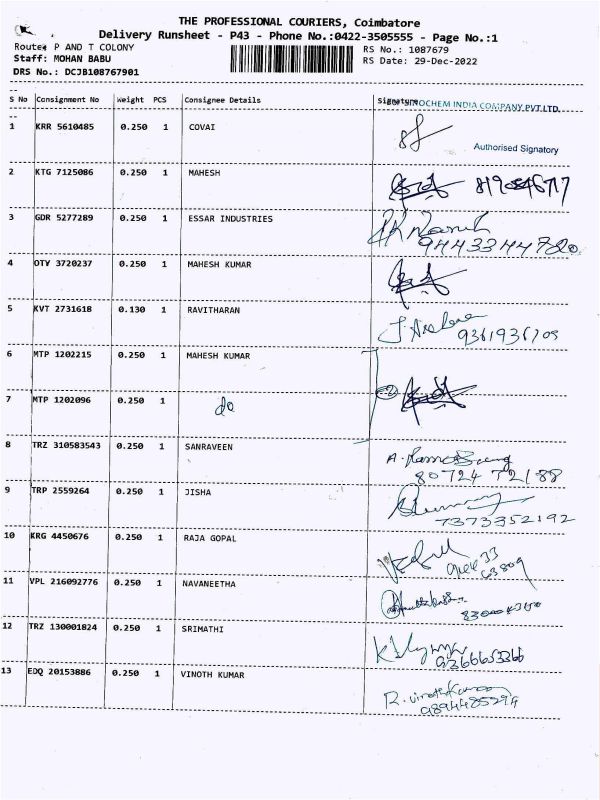 THE PROFESSIONAL COURIERS, Coimbatore
Delivery Runsheet - P43 - Phone No.:0422-3505555 - Page No.:1
Route: P AND T COLONY RS No.: 1087679
Staff: MOHAN BABU RS Date: 29-Dec-2022
DRS No.: DCJB108767901
S No Consignment No Weight PCS Consignee Details Signature
INDIA COMPANY PVT.LTD.
1 KRR 5610485 0.250 1 COVAI
Authorised Signatory
2 KTG 7125086 0.250 1 MAHESH
3 GDR 5277289 0.250 1 ESSAR INDUSTRIES
9443344780
4 OTV 3720237 0.250 1 MAHESH KUMAR
5 KVT 2731618 0.130 1 RAVITHARAN
9361936709
6 MTP 1202215 0.250 1 MAHESH KUMAR
7 MTP 1202096 0.250 1 do
8 TRZ 310583543 0.250 1 SANRAVEEN
80724 72188
9 TRP 2559264 0.250 1 JISHA
7373352192
10 KRG 4450676 0.250 1 RAJA GOPAL
11 VPL 216092776 0.250 1 NAVANEETHA
12 TRZ 130001824 0.250 1 SRIMATHI
9366653366
13 EDQ 20153886 0.250 1 VINOTH KUMAR
R. vinothkumar
9894485294